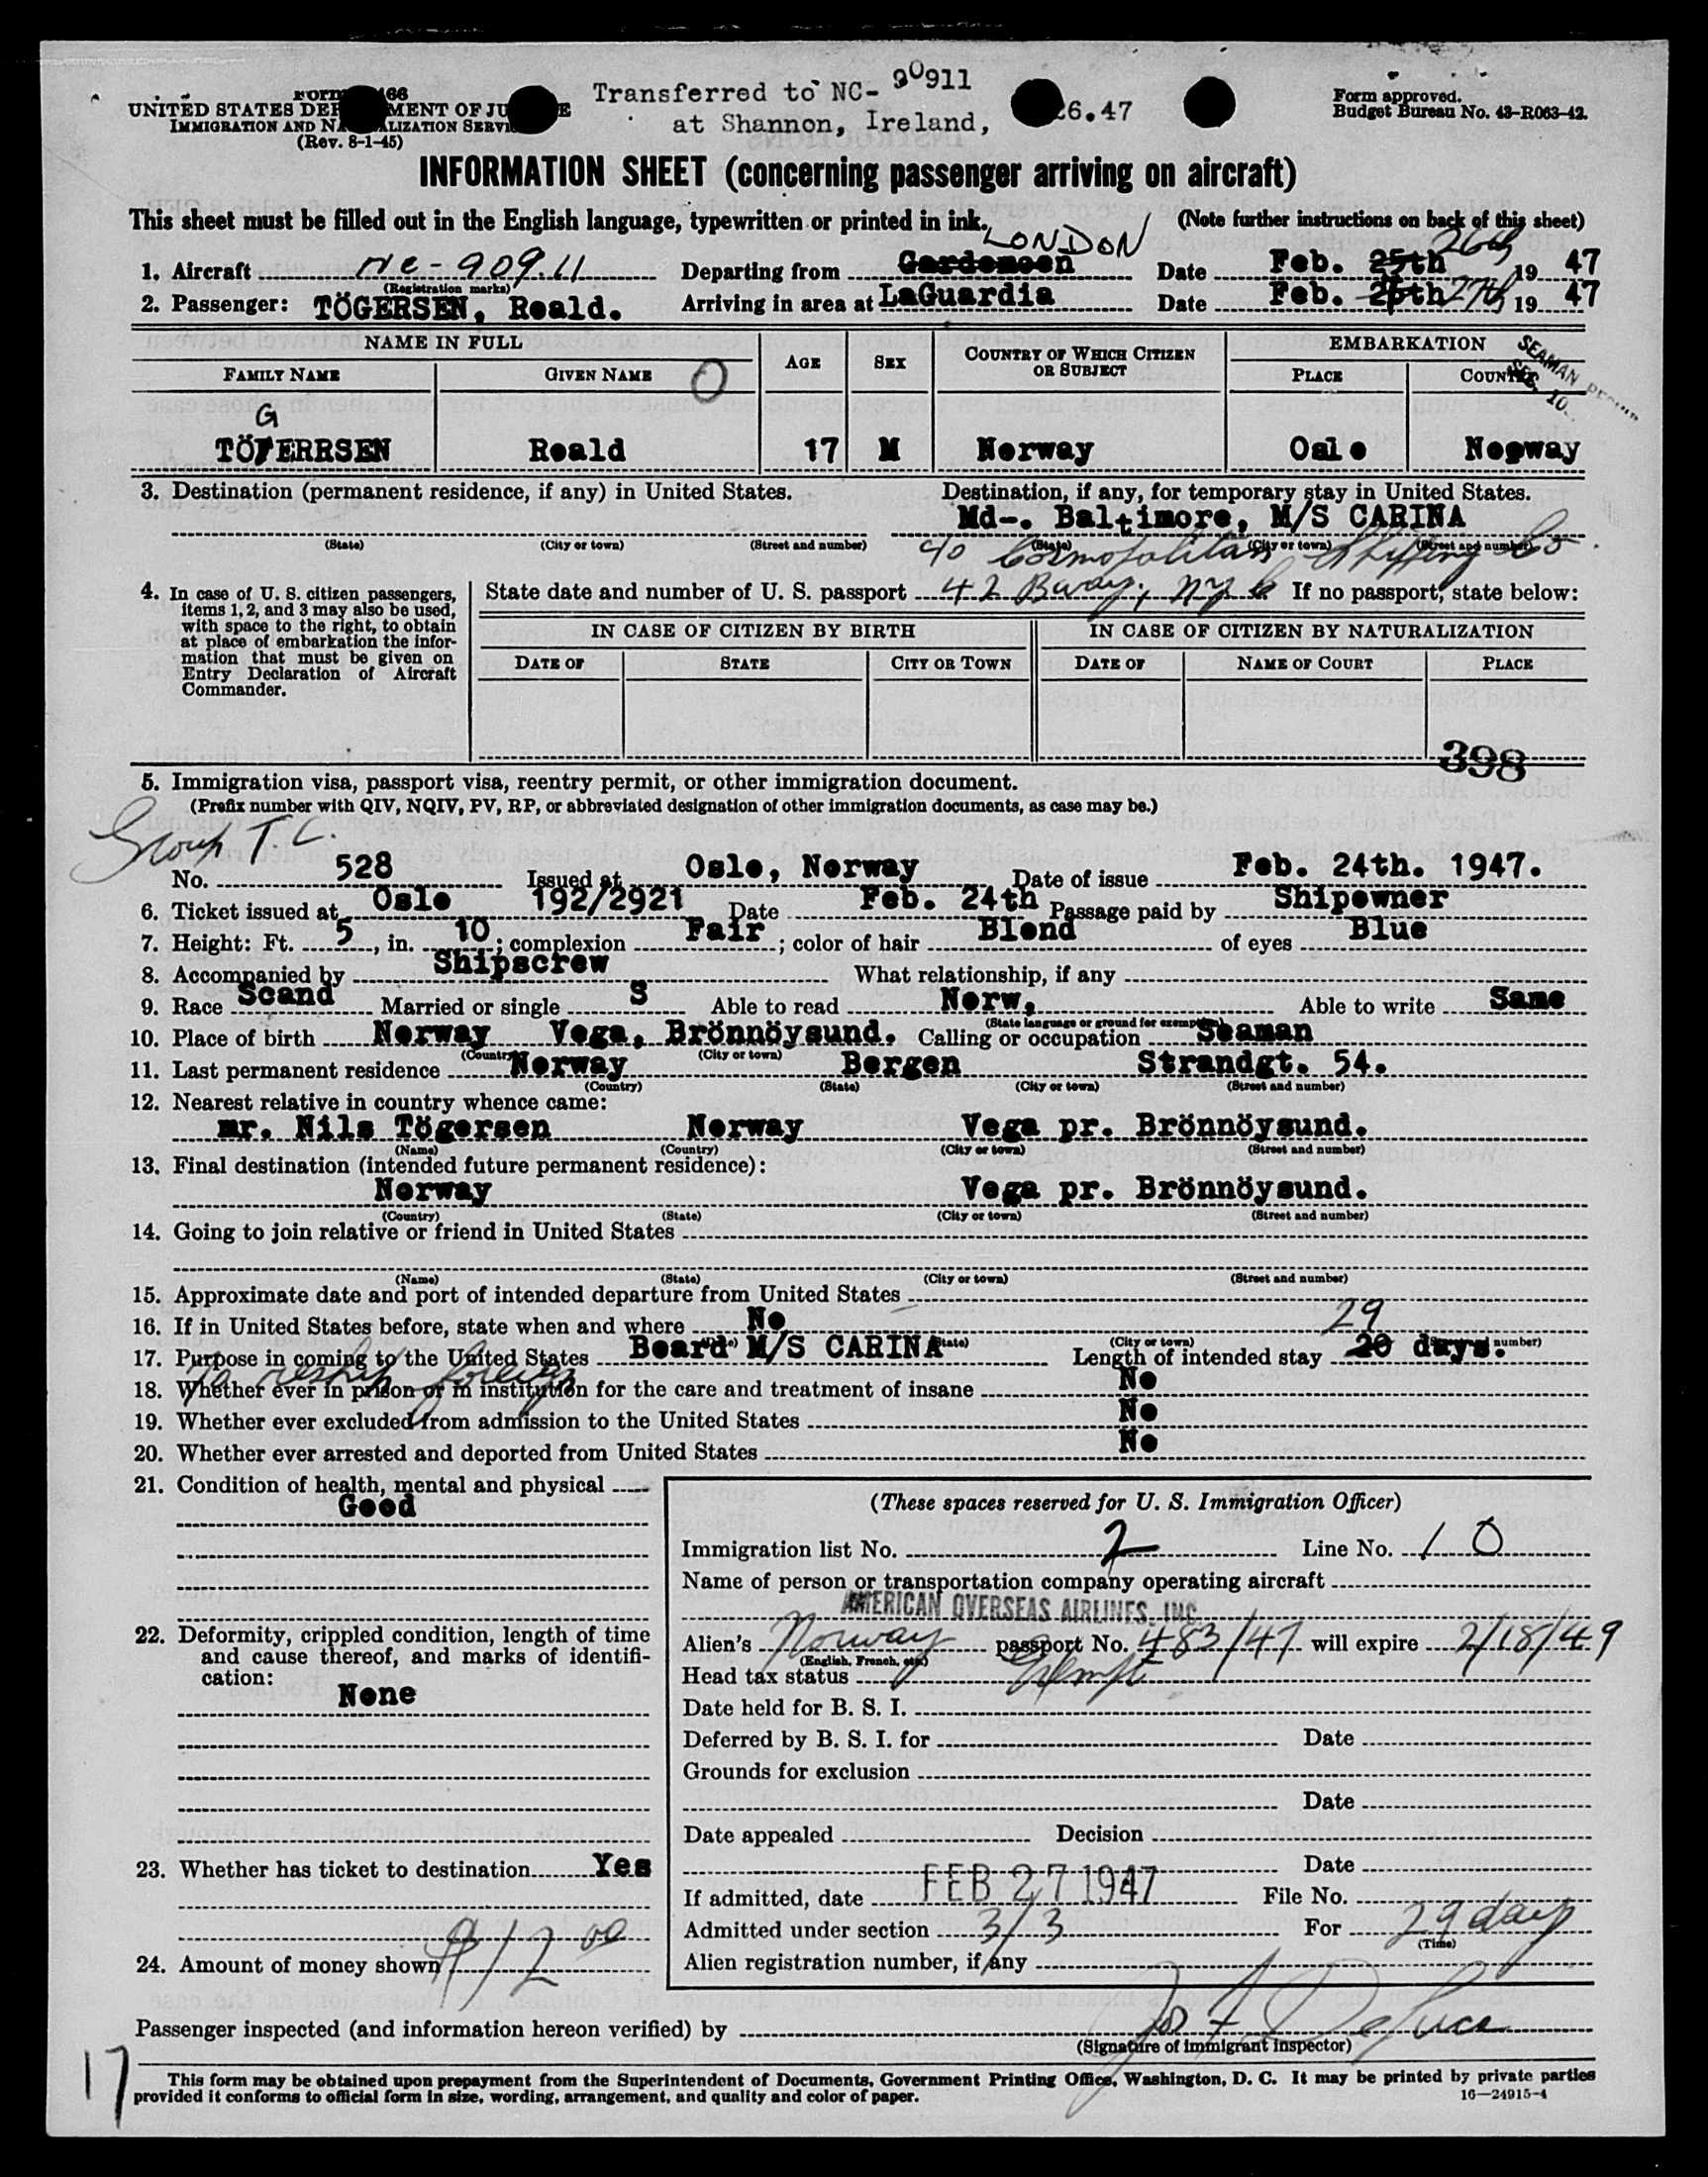 Transferred to NC- 90911
at Shannon, Ireland, 26.47
Form 466
UNITED STATES DEPARTMENT OF JUSTICE
IMMIGRATION AND NATURALIZATION SERVICE
(Rev. 8-1-45)
Form approved.
Budget Bureau No. 43-R063-42.
INFORMATION SHEET (concerning passenger arriving on aircraft)
This sheet must be filled out in the English language, typewritten or printed in ink. (Note further instructions on back of this sheet)
LONDON 26th
1. Aircraft NC-90911 Departing from Gardemoen Date Feb. 25th 19 47
(Registration marks)
2. Passenger: TÖGERSEN, Roald. Arriving in area at LaGuardia Date Feb. 26th 27th 19 47
NAME IN FULL AGE SEX COUNTRY OF WHICH CITIZEN OR SUBJECT EMBARKATION
FAMILY NAME GIVEN NAME O PLACE COUNTRY
SEAMAN
SEC. 10
G
TÖFERRSEN Roald 17 M Norway Oslo Nopway
3. Destination (permanent residence, if any) in United States. Destination, if any, for temporary stay in United States.
Md-. Baltimore, M/S CARINA
(State) (City or town) (Street and number) (State) (City or town) (Street and number)
c/o Cosmopolitan Shipping Co.
4. In case of U. S. citizen passengers, items 1, 2, and 3 may also be used, with space to the right, to obtain at place of embarkation the information that must be given on Entry Declaration of Aircraft Commander.
State date and number of U. S. passport 42 Bway, NYC If no passport, state below:
IN CASE OF CITIZEN BY BIRTH IN CASE OF CITIZEN BY NATURALIZATION
DATE OF STATE CITY OR TOWN DATE OF NAME OF COURT PLACE
398
5. Immigration visa, passport visa, reentry permit, or other immigration document.
(Prefix number with QIV, NQIV, PV, RP, or abbreviated designation of other immigration documents, as case may be.)
Group T. C.
No. 528 Issued at Oslo, Norway Date of issue Feb. 24th. 1947.
6. Ticket issued at Oslo 192/2921 Date Feb. 24th Passage paid by Shipowner
7. Height: Ft. 5, in. 10; complexion Fair; color of hair Blond of eyes Blue
8. Accompanied by Shipscrew What relationship, if any
9. Race Scand Married or single S Able to read Norw, Able to write Same
(State language or ground for exemption)
10. Place of birth Norway Vega, Brönnöysund. Calling or occupation Seaman
(Country) (City or town)
11. Last permanent residence Norway Bergen Strandgt. 54.
(Country) (State) (City or town) (Street and number)
12. Nearest relative in country whence came:
mr. Nils Tögersen Norway Vega pr. Brönnöysund.
(Name) (Country) (City or town) (Street and number)
13. Final destination (intended future permanent residence):
Norway Vega pr. Brönnöysund.
(Country) (State) (City or town) (Street and number)
14. Going to join relative or friend in United States
(Name) (State) (City or town) (Street and number)
15. Approximate date and port of intended departure from United States
16. If in United States before, state when and where No 29
(State) (City or town) (Street and number)
17. Purpose in coming to the United States Board M/S CARINA Length of intended stay 20 days.
To reship foreign
18. Whether ever in prison or in institution for the care and treatment of insane No
19. Whether ever excluded from admission to the United States No
20. Whether ever arrested and deported from United States No
21. Condition of health, mental and physical
Good
22. Deformity, crippled condition, length of time and cause thereof, and marks of identification:
None
23. Whether has ticket to destination Yes
24. Amount of money shown $12 00
(These spaces reserved for U. S. Immigration Officer)
Immigration list No. 2 Line No. 10
Name of person or transportation company operating aircraft
AMERICAN OVERSEAS AIRLINES, INC.
Alien's Norway passport No. 483/47 will expire 2/18/49
(English, French, etc.)
Head tax status Exempt
Date held for B. S. I.
Deferred by B. S. I. for Date
Grounds for exclusion
Date
Date appealed Decision
Date
If admitted, date FEB 27 1947 File No.
Admitted under section 3/3 For 29 days
(Time)
Alien registration number, if any
Passenger inspected (and information hereon verified) by
(Signature of immigrant inspector)
17
This form may be obtained upon prepayment from the Superintendent of Documents, Government Printing Office, Washington, D. C. It may be printed by private parties
provided it conforms to official form in size, wording, arrangement, and quality and color of paper.
16—24915-4